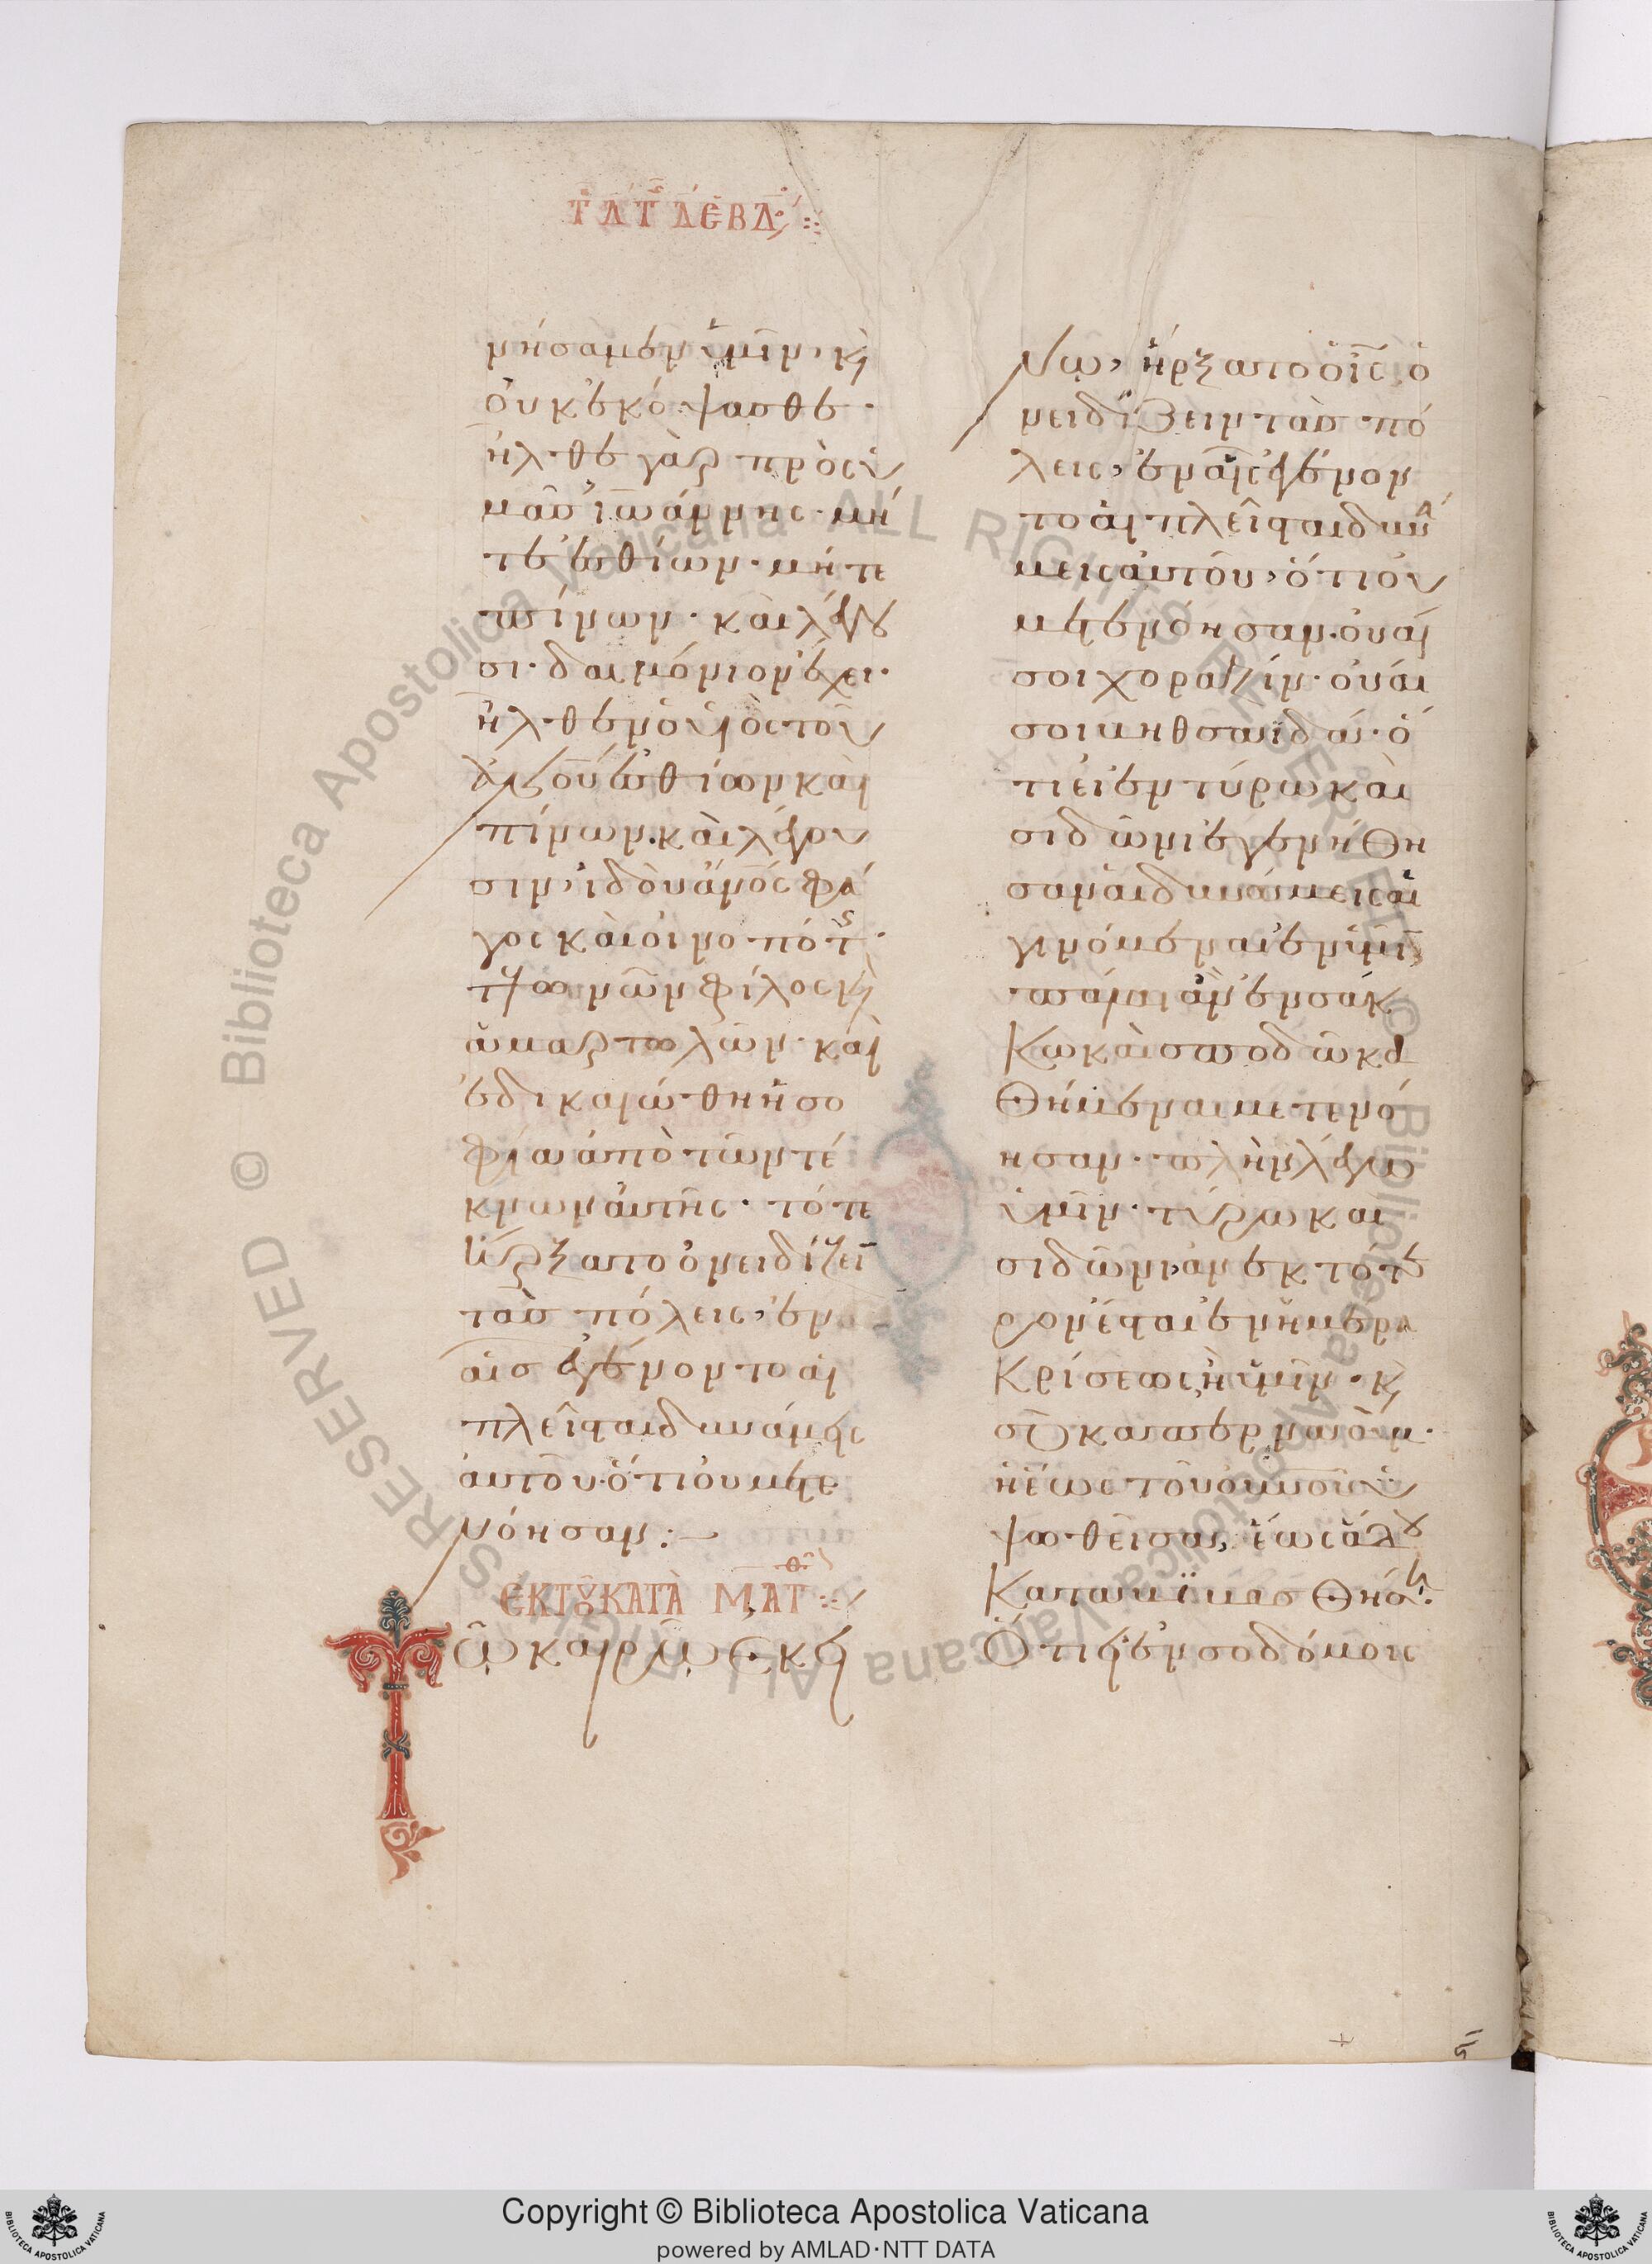 Τῇ Δ τ Δ ἑβδ
νήσαμεν ὑμῖν, κ(αὶ)
οὐκ ἐκόψασθε·
ἦλθε γὰρ πρὸς ὑ
μᾶς ἰωάννης· μή
τε ἐσθίων· μήτε
πίνων· καὶ λέγου
σι· δαιμόνιον ἔχει·
ἦλθεν ὁ υἱὸς τοῦ
ἀν(θρώπ)ου ἐσθίων καὶ
πίνων· καὶ λέγου
σιν, ἰδοὺ ἄν(θρωπ)ος φά
γος καὶ οἰνοπότης·
τελωνῶν φίλος κ(αὶ)
ἁμαρτωλῶν· καὶ
ἐδικαιώθη ἡ σο
φία ἀπὸ τῶν τέ
κνων αὐτῆς· τότε
ἤρξατο ὀνειδίζειν
τὰς πόλεις, ἐν
αἷς ἐγένοντο αἱ
πλεῖσται δυνάμεις
αὐτοῦ· ὅτι οὐ μετε
νόησαν:–
ἐκ τοῦ κατὰ Ματθ
Τῷ καιρῷ ἐκεί
νῳ, ἤρξατο ὁ ἰ(ησοῦ)ς ὀ
νειδίζειν τὰς πό
λεις, ἐν αἷς ἐγένον
το αἱ πλεῖσται δυνά
μεις αὐτοῦ, ὅτι οὐ
μετενόησαν· οὐαί
σοι χοραζίν· οὐαί
σοι βηθσαϊδά· ὅ
τι εἰ ἐν τύρω καὶ
σιδῶνι ἐγενήθη
σαν αἱ δυνάμεις αἱ
γινόμεναι ἐν ὑμῖν,
πάλαι ἂν ἐν σάκ
κω καὶ σποδῶ κα
θήμεναι μετενό
ησαν· πλὴν λέγω
ὑμῖν· τύρω καὶ
σιδῶνι, ἀνεκτότε
ρον ἔσται ἐν ἡμέρα
κρίσεως, ἢ ὑμῖν· κ(αὶ)
σὺ καπερναούμ·
ἡ ἕως τοῦ οὐ(ρα)νοῦ ὑ
ψωθεῖσα, ἕως ἅδου
καταβιβασθήση·
ὅτι εἰ ἐν σοδόμοις
Copyright © Biblioteca Apostolica Vaticana
powered by AMLAD·NTT DATA